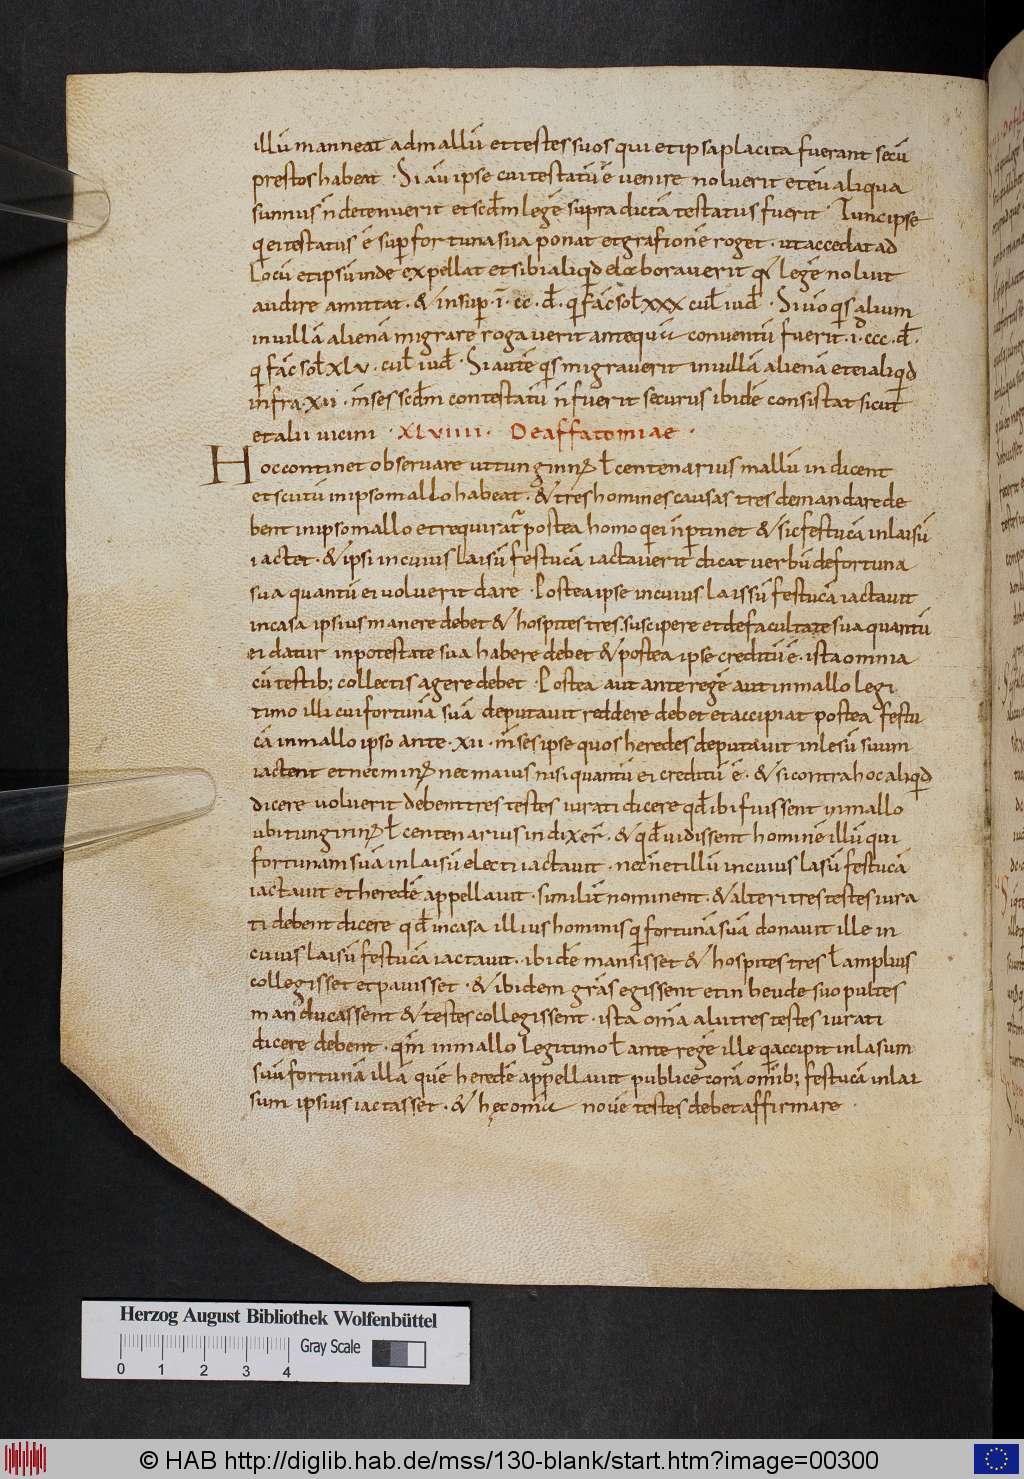 illū manneat ad mallū et testes suos qui et ipsa placita fuerant secū
prestos habeat · Si aū ipse cui testatū ē venire noluerit et eū aliqua
sunnus n̄ detenuerit et scd̄m legē supra dictā testatus fuerit · Tunc ipse
q̄ ei testatus ē sup̄ fortuna sua ponat et grafionē roget · ut accedat ad
locū et ipsū inde expellat et sibi aliqd̄ elaboraverit q̄ legē noluit
audire amittat · & insup̄ · ī · cc · d̄ · q̄ fac̄ sol̄ xxx cul̄ iud̄ · Si vo q̄s alium
in villā alienā migrare rogaverit antequā conventū fuerit · ī · ccc · d̄ ·
q̄ fac̄ sol̄ xlv · cul̄ iud̄ · Si autē q̄s migraverit in villā alienā et ei aliqd̄
infra · xii · m̄ses scd̄m contestatū n̄ fuerit securus ibidē consistat sicut
et alii vicini · XLVIIII · De affatomiae ·
Hoc continet observare ut tunginꝰ l̄ centenarius mallū indicent
et scutū in ipso mallo habeat · & tres homines causas tres demandare de
bent in ipso mallo et requirat̄ postea homo q̄ ei n̄ p̄tinet & sic festucā in laisū
iactet · & ipsi in cuius laisū festucā iactaverit dicat verbū de fortuna
sua quantū ei voluerit dare · Postea ipse in cuius laissū festucā iactavit
in casa ipsius manere debet & hospites tres suscipere et de facultate sua quantū
ei datur in potestate sua habere debet & postea ipse creditū ē · ista omnia
cū testib; collectis agere debet · Postea aut ante regē aut in mallo legi
timo illi cui fortunā suā deputavit reddere debet et accipiat postea festu
cā in mallo ipso ante · xii · m̄ses ipse quos heredes deputavit in lesū suum
iactent et nec minꝰ nec maius nisi quantū ei creditū ē · & si contra hoc aliqd̄
dicere voluerit debent tres testes iurati dicere qd̄ ibi fuissent in mallo
ubi tunginꝰ l̄ centenarius indixer̄ · & qd̄ vidissent hominē illū qui
fortunam suā in laisū electi iactavit · necn̄ et illū in cuius lasū festucā
iactavit et heredē appellavit · similit̄ nominent · & alteri tres testes iura
ti debent dicere qd̄ in casa illius hominis q̄ fortunā suā donavit ille in
cuius laisū festucā iactavit · ibidē mansisset & hospites tres l̄ amplius
collegisset et pavisset · & ibidem grās egissent et in beude suo pultes
manducassent & testes collegissent · ista om̄ia alii tres testes iurati
dicere debent · qm̄ in mallo legitimo l̄ ante regē ille q̄ accipit in lasum
suū fortunā illā quē heredē appellavit publice corā om̄ib; festucā in lai
sum ipsius iactasset · & hęc om̄ia novē testes debet affirmare ·
Herzog August Bibliothek Wolfenbüttel
0 1 2 3 4 Gray Scale
© HAB http://diglib.hab.de/mss/130-blank/start.htm?image=00300